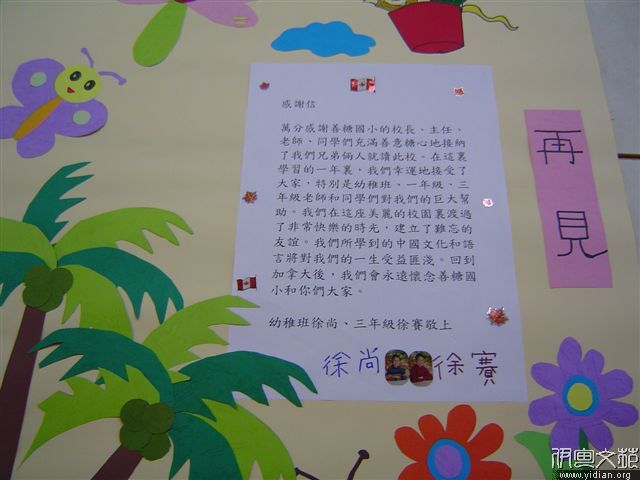 感謝信
萬分感謝善糖國小的校長、主任、
老師、同學們充滿善意糖心地接納
了我們兄弟倆人就讀此校。在這裏
學習的一年裏，我們幸運地接受了
大家，特別是幼稚班、一年級、三
年級老師和同學們對我們的巨大幫
助。我們在這座美麗的校園裏渡過
了非常快樂的時光，建立了難忘的
友誼。我們所學到的中國文化和語
言將對我們的一生受益匪淺。回到
加拿大後，我們會永遠懷念善糖國
小和你們大家。
幼稚班徐尚、三年級徐賽敬上
徐尚 徐賽
再見
www.yidian.org